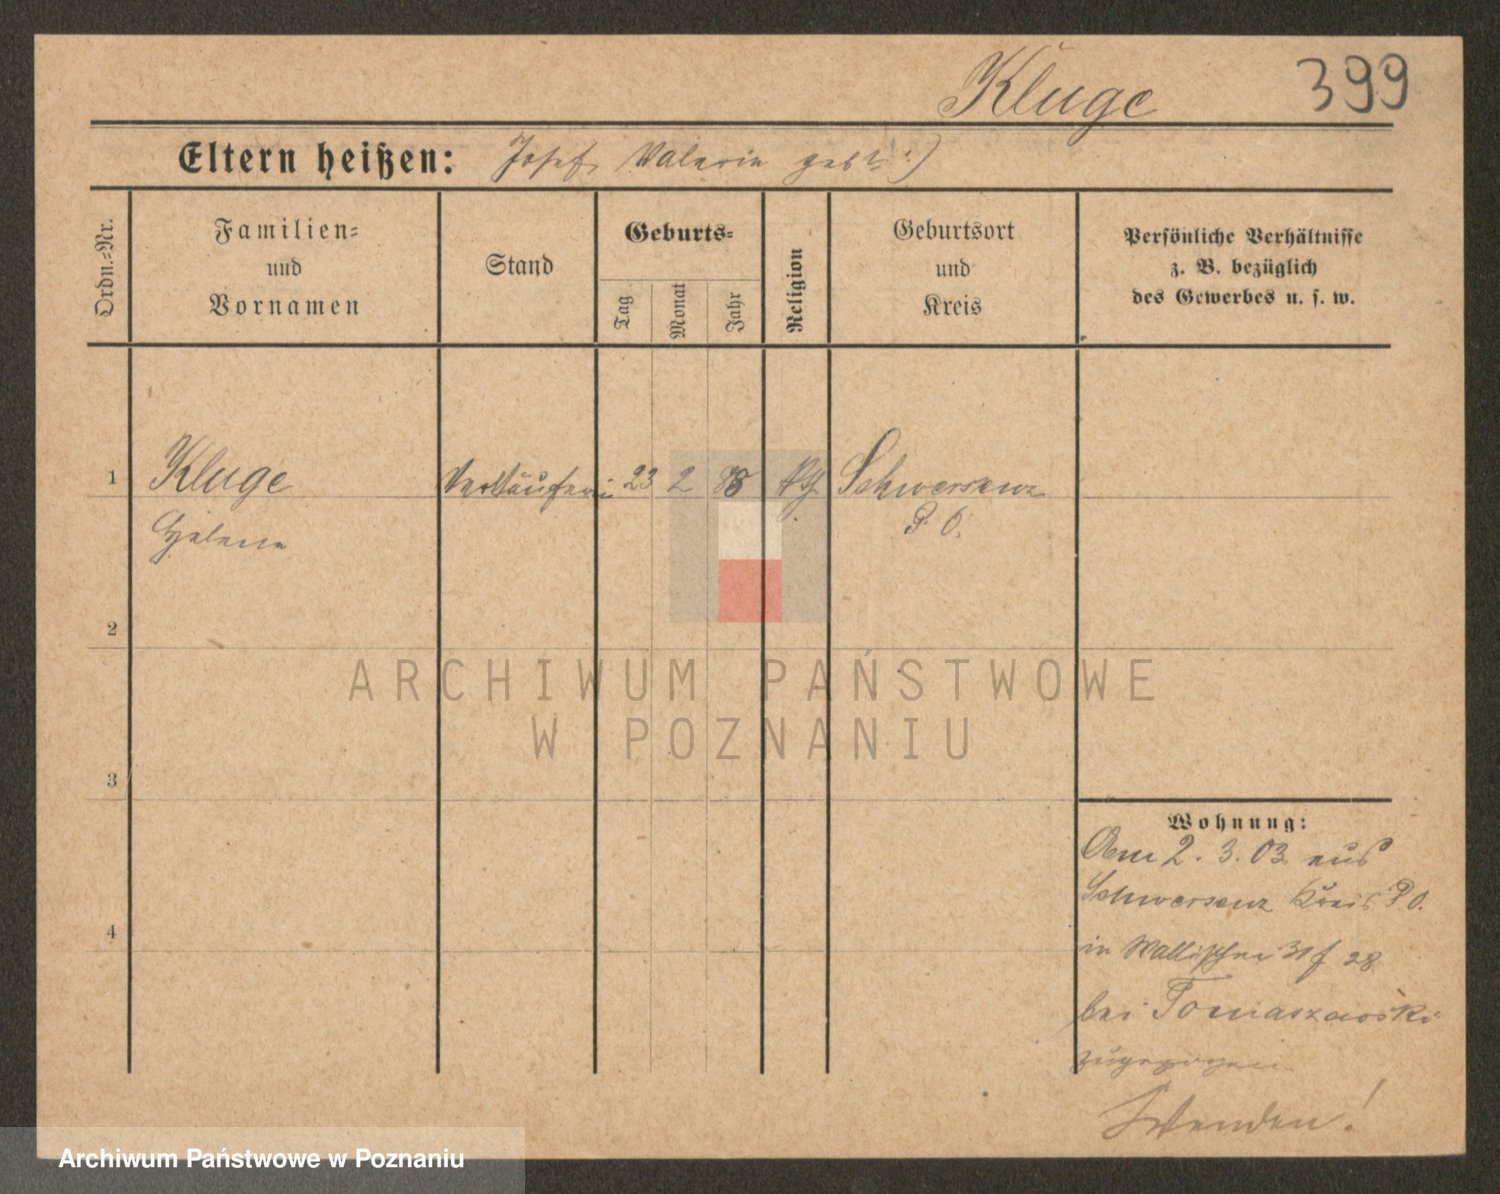 Kluge 399
Eltern heißen: Josef, Valerie geb.
Ordn.-Nr.
Familien-
und
Vornamen
Stand
Geburts-
Tag
Monat
Jahr
Religion
Geburtsort
und
Kreis
Persönliche Verhältnisse
z. B. bezüglich
des Gewerbes u. s. w.
1 Kluge Verkäuferin 23 2 88 Schwersenz
Helene P. O.
2
3
4
Wohnung:
Am 2. 3. 03 aus
Schwersenz Kreis P O.
in Wallischei 28
bei Tomaszewski
zugezogen
Wenden!
ARCHIWUM PAŃSTWOWE
W POZNANIU
Archiwum Państwowe w Poznaniu